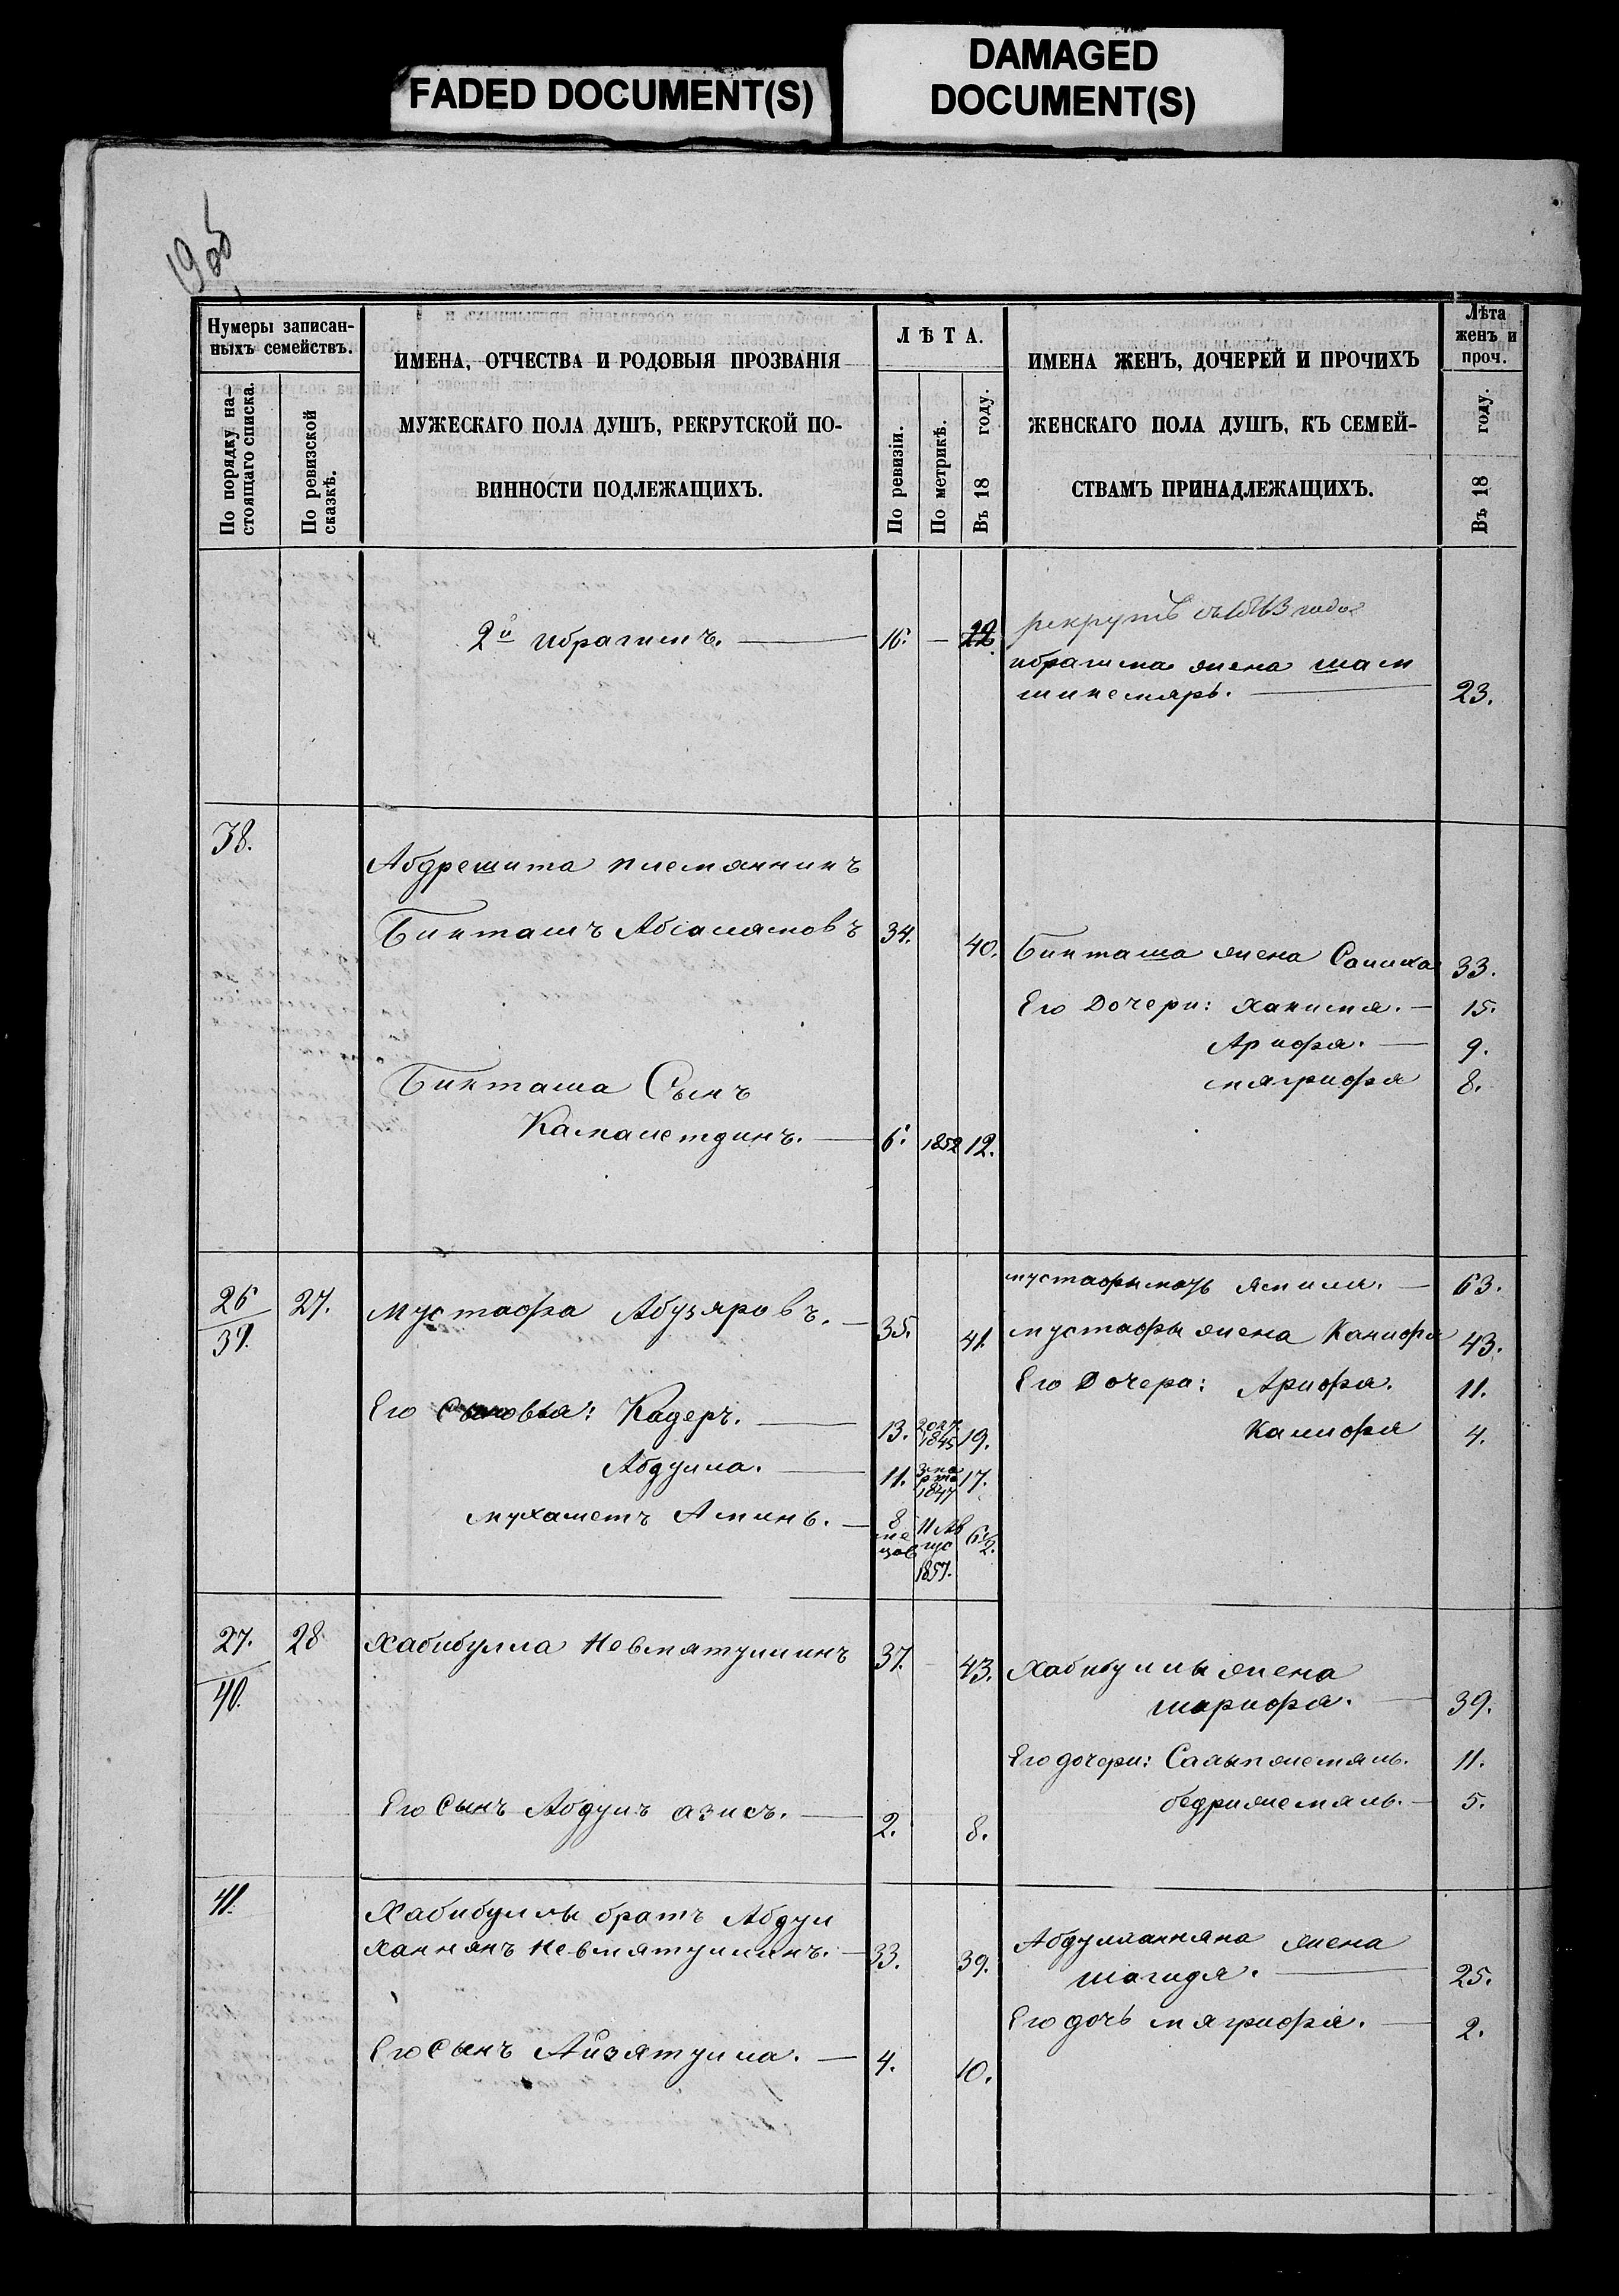 FADED DOCUMENT(S)
DAMAGED
DOCUMENT(S)
Нумеры записан-
ныхъ семействъ.
По порядку на-
стоящаго списка.
По ревизской
сказкѣ.
ИМЕНА, ОТЧЕСТВА И РОДОВЫЯ ПРОЗВАНІЯ
МУЖЕСКАГО ПОЛА ДУШЪ, РЕКРУТСКОЙ ПО-
ВИННОСТИ ПОДЛЕЖАЩИХЪ.
ЛѢТА.
По ревизіи.
По метрикѣ.
Въ 18 году.
ИМЕНА ЖЕНЪ, ДОЧЕРЕЙ И ПРОЧИХЪ
ЖЕНСКАГО ПОЛА ДУШЪ, КЪ СЕМЕЙ-
СТВАМЪ ПРИНАДЛЕЖАЩИХЪ.
Лѣта
женъ и
проч.
Въ 18 году.
2й Ибрагимъ. 16. — 22.
рекрутъ съ 1863 года
ибрагима жена шам
шинемяръ. 23.
38.
Абдрешита племянникъ
Бикташъ Абсалямовъ 34. 40.
Бикташа жена Салиха 33.
Его Дочери: Ханися. — 15.
Арифа. — 9.
мягрифя 8.
Бикташа Сынъ
Камалетдинъ. — 6. 1852 12.
26 27. Мустафа Абузяровъ. — 35. 41.
39.
мустафы мать Ямиля. — 63.
мустафы жена Канифя 43.
Его Дочери: Арифа. 11.
Калифя 4.
Его Сыновья: Кадеръ. — 13. 1845 19.
Абдулла. — 11. 3 марта 1847 17.
Мухаметъ Аминь. — 8 ме цов 11 Ав гус 1857. 6 1/2.
27. 28 Хабибулла Невматуллинъ 37. — 43.
40.
Хабибуллы жена
шарифа. — 39.
Его дочери: Салыпжемяль. 11.
бедрижемяль. — 5.
Его Сынъ Абдулъ азисъ. — 2. 8.
41.
Хабибуллы братъ Абдул
ханнянъ Невмятуллинъ. — 33. 39.
Абдулханняна жена
шагидя. — 25.
Его дочь мягрифя. — 2.
Его Сынъ Айзятулла. — 4. 10.